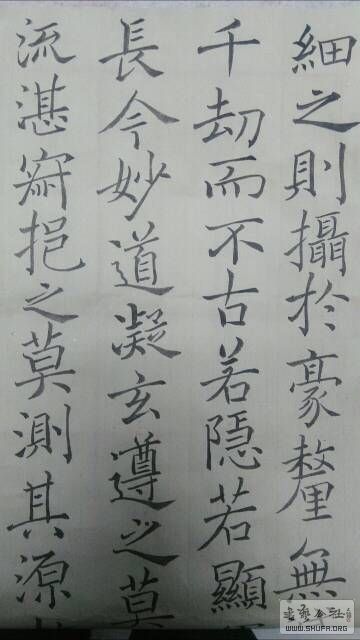 細之則攝於豪釐無
千劫而不古若隱若顯
長今妙道凝玄遵之莫
流湛寂挹之莫測其源
WWW.SHUFA.ORG